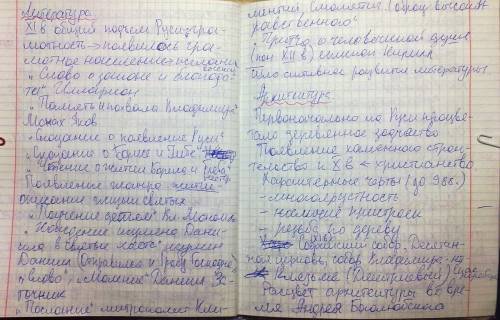 Литература.
XI в общий подъем Руси → грамотность → появилось грамотное население
"Слово о законе и благодати" Илларион
"Память и похвала Владимиру"
Монах Яков
"Сказание о появление Руси"
"Сказание о Борисе и Глебе"
"Чтение о житии Бориса и Глеба"
Появление жанра житие -
описание жизни святых
"Поучение детям" Вл. Мономах
"Хождение игумена Дании-
ла в святые места" игумен
Даниил (Отправился к Гробу Господню)
"Слово" и "Моление" Даниила За-
точник
"Послание" митрополит Кли-
мент Смолятич (образ высоконравственного
"Притча о человеческой душе"
(кон XII в) Кирилл
Шло активное развитие литературы
Архитектура
Первоначально на Руси процве-
тало деревянное зодчество
Появление каменного строи-
тельства к X в ← христианство
Характерные черты (до 988г.)
- многоярустность
- пристроек
- резьба по дереву
Софийский собор, Десятин-
ная церковь, собор Владимира-на-
Клязьме (Дмитриевский)
Расцвет архитектуры во вре-
мя Андрея Боголюбского